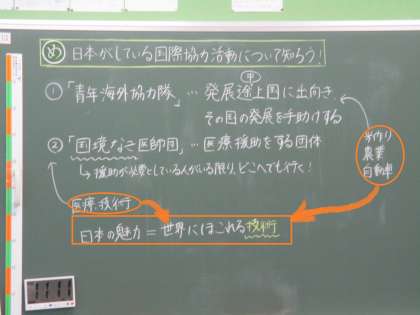 め 日本がしている国際協力活動について知ろう!
中
① 「青年海外協力隊」… 発展途上国に出向き、
その国の発展を手助けする
② 「国境なき医師団」… 医療援助をする団体
↳ 援助が必要としている人がいる限り、どこへでも行く!
米作り
農業
自動車
医療、技術
日本の魅力 = 世界にほこれる技術
11:11